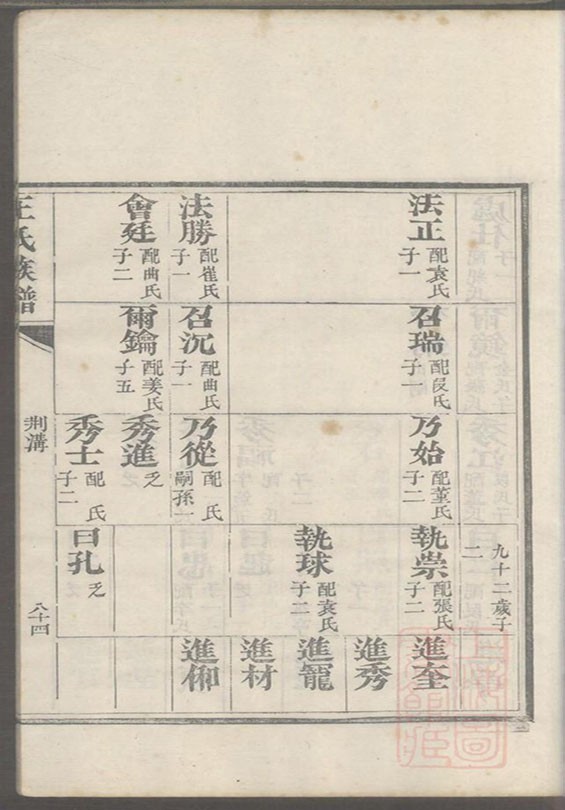 九十二歲子二
法正 配袁氏 子一
召瑞 配段氏 子一
乃始 配董氏 子二
執崇 配張氏 子二
進奎
進秀
執球 配袁氏 子二
進寵
進材
法勝 配崔氏 子一
召沉 配曲氏 子一
乃從 配 氏 嗣孫一
進仰
會廷 配曲氏 子二
爾鑰 配姜氏 子五
秀進 乏
秀士 配 氏 子二
曰孔 乏
王氏族譜
荆溝
八十四